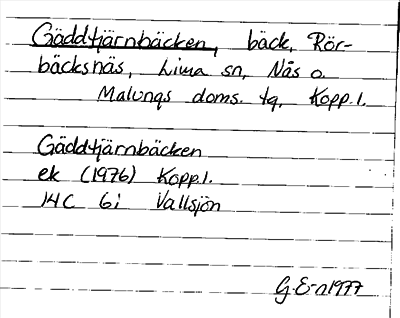 Gäddtjärnbäcken, bäck, Rör-
bäcksnäs, Lima sn, Nås o.
Malungs doms. tg, Kopp. l.
Gäddtjärnbäcken
ek (1976) Kopp. l.
14C 6i Vallsjön
G.E-n 1977